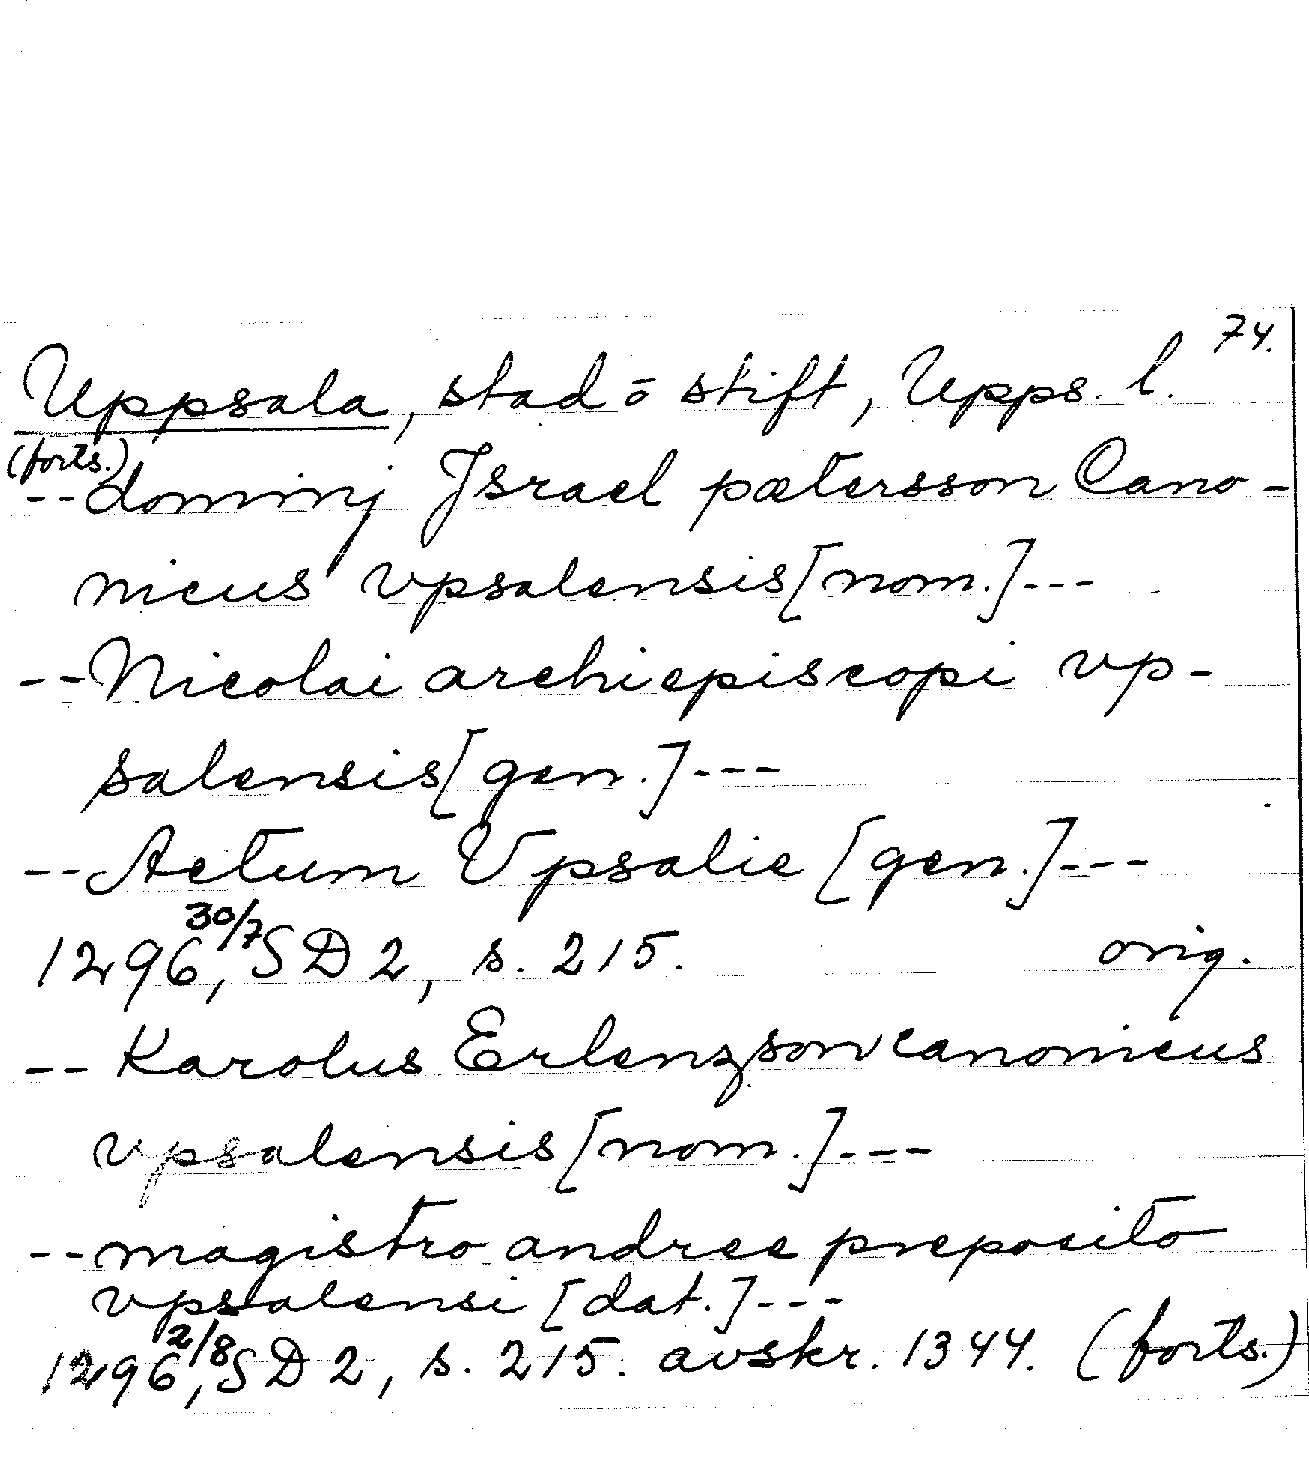 74.
Uppsala, stad o stift, Upps. l.
(forts.)
-- dominj Israel pætersson Cano-
nicus vpsalensis [nom.]---
-- Nicolai archiepiscopi vp-
salensis [gen.]---
-- Actum Vpsalie [gen.]---
1296 30/7, SD 2, s. 215. orig.
-- Karolus Erlenzson canonicus
vpsalensis [nom.]---
-- magistro andree preposito
vpsalensi [dat.]---
1296 2/8, SD 2, s. 215. avskr. 1344. (forts.)